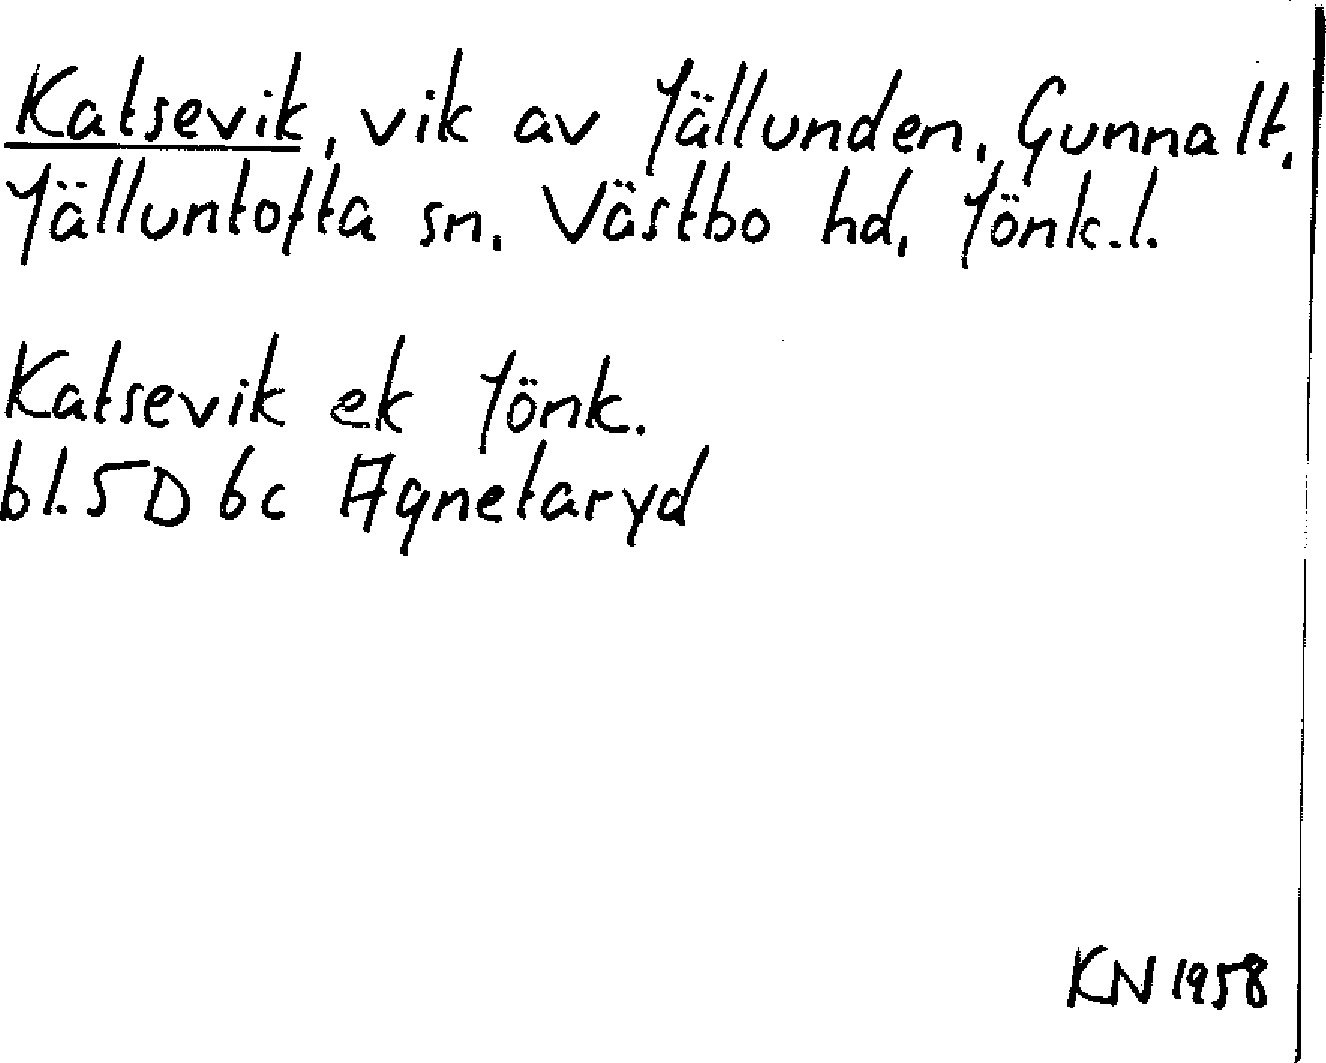 Katsevik, vik av Jällunden, Gunnalt,
Jälluntofta sn, Västbo hd, Jönk.l.
Katsevik ek Jönk.
bl. 5D 6c Agnetaryd
KN 1958